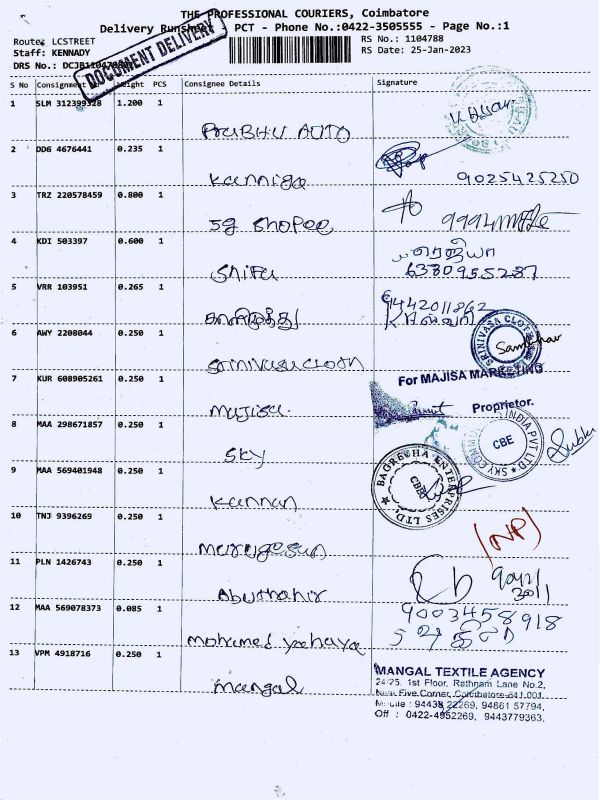 THE PROFESSIONAL COURIERS, Coimbatore
Delivery Runsheet PCT - Phone No.:0422-3505555 - Page No.:1
Route: LCSTREET
Staff: KENNADY
DRS No.: DCJB1104788
RS No.: 1104788
RS Date: 25-Jan-2023
DOCUMENT DELIVERY
S No Consignment Weight PCS Consignee Details Signature
1 SLM 312399328 1.200 1 PRABHU AUTO
2 DDG 4676441 0.235 1 Kanniga 9025425250
3 TRZ 220578459 0.800 1 5g Shopee
4 KDI 503397 0.600 1 Shifu
6380955287
5 VRR 103951 0.265 1 காளிமுத்து 9442011862
6 AWY 2208044 0.250 1 Srinivasa cloth
SRINIVASA CLOTH
7 KUR 608905261 0.250 1 Majisa
For MAJISA MARKETING
Proprietor.
8 MAA 298671857 0.250 1 SKY
SKY COMM INDIA PVT LTD
CBE
Subbu
9 MAA 569401948 0.250 1 Kannan
BAGRECHA ENTERPRISES LTD.
CBE
10 TNJ 9396269 0.250 1 Murugesan
(NP)
11 PLN 1426743 0.250 1 Abuthahir
12 MAA 569078373 0.085 1 Mohamed yaahaya 9003458918
13 VPM 4918716 0.250 1 Mangal
MANGAL TEXTILE AGENCY
24-25, 1st Floor, Rathnam Lane No.2,
Near Five Corner, Coimbatore-641 001.
Mobile : 94438 22269, 94861 57794,
Off : 0422-4952269, 9443779363.